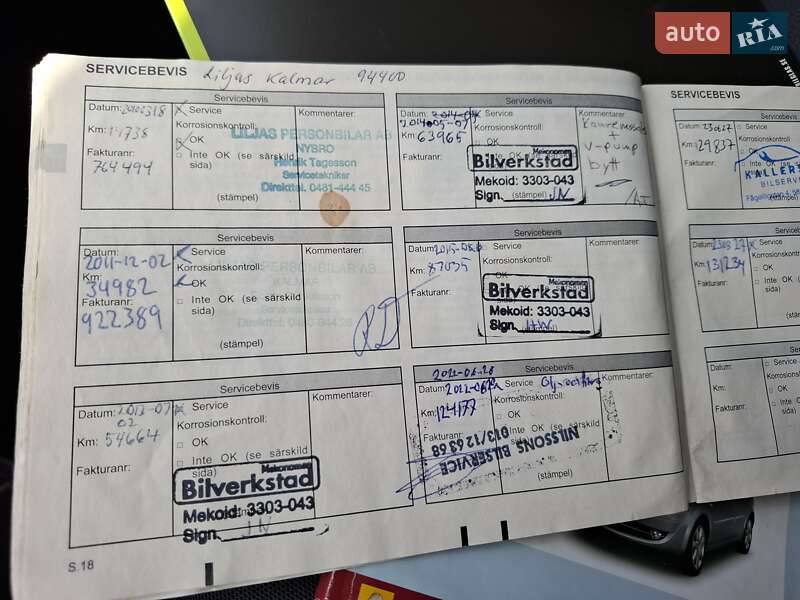 auto RIA.com
SERVICEBEVIS Liljas Kalmar 94400
Servicebevis
Datum:
Km: 14738
Fakturanr:
764494
Service
Korrosionskontroll:
OK
Inte OK (se särskild
sida)
(stämpel)
Kommentarer:
LILJAS PERSONBILAR AB
NYBRO
Henrik Tagesson
Servicetekniker
Direkttel. 0481-444 45
Servicebevis
Datum:
2014-05-07
Km: 63965
Fakturanr:
Service
Korrosionskontroll:
OK
Mekonomen
Bilverkstad
Mekoid: 3303-043
Sign. JN
(stämpel)
Kommentarer:
+
V-pump
bytt
Servicebevis
Datum:
2011-12-02
Km:
34982
Fakturanr:
922389
Service
Korrosionskontroll:
OK
Inte OK (se särskild
sida)
(stämpel)
Kommentarer:
PERSONBILAR AB
KALMAR
Servicebevis
Datum:
Km: 87035
Fakturanr:
Service
Korrosionskontroll:
OK
Mekonomen
Bilverkstad
Mekoid: 3303-043
Sign.
(stämpel)
Kommentarer:
Servicebevis
Datum: 2012-07
02
Km: 54664
Fakturanr:
Service
Korrosionskontroll:
OK
Inte OK (se särskild
sida)
Kommentarer:
Mekonomen
Bilverkstad
Mekoid: 3303-043
Sign. JN
Servicebevis
Datum:
Km: 124177
Fakturanr:
Service
Korrosionskontroll:
OK
Inte OK (se särskild
sida)
(stämpel)
Kommentarer:
NILSSONS BILSERVICE
013/12 63 68
S.18
SERVICEBEVIS
Datum:
Km: 29837
Fakturanr:
Service
Korrosionskontroll:
OK
Inte OK (se särskild
sida)
(stämpel)
BILSERV
Datum:
Km:
131234
Fakturanr:
Service
Korrosionskontroll:
OK
Inte OK (se särskild
sida)
(stämpel)
Datum:
Km:
Fakturanr:
Service
Korrosionskontroll:
OK
Inte OK (se
sida)
(stämpel)